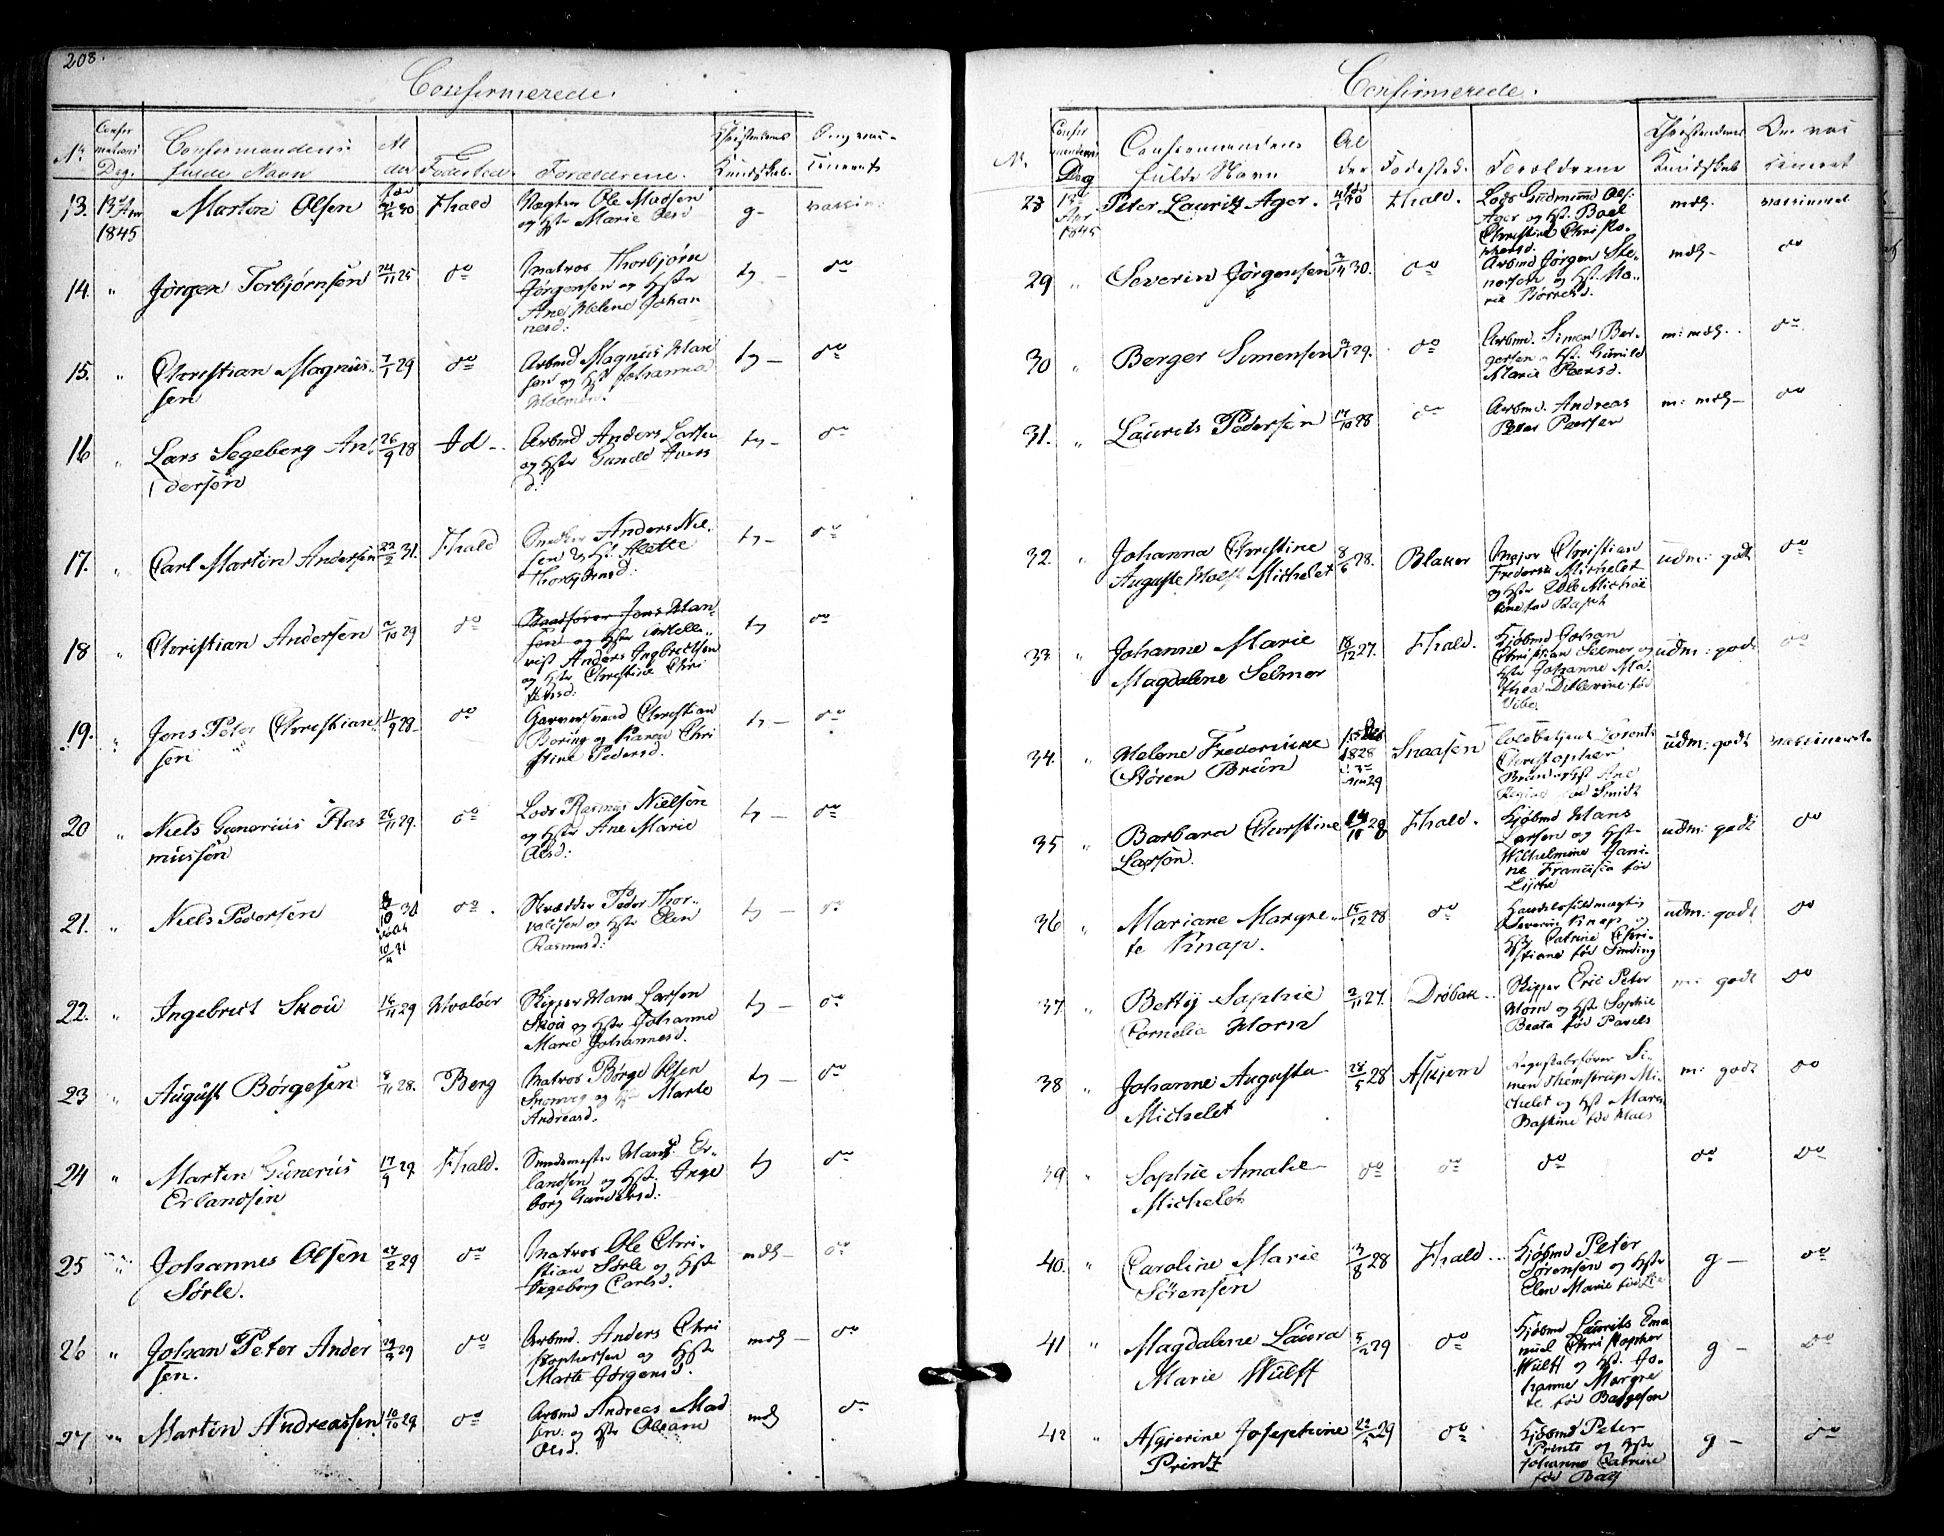 208.
Confirmerede.
No
Confirmations Dag.
Confirmandens fulde Navn
Alder
Fødested.
Forældrene.
Christendoms Kundskab.
Om vaccineret
13. 13de Apr 1845 Marten Olsen 30 Fhald
Vægter Ole Madsen
og Hste Marie Olsd g- vaccin:
14. " Jørgen Torbjørnsen 24/11 25 do
Matros Thorbjørn
Jørgensen og Hste
Ane Helene Johan
nesd: tg - do
15. " Christian Magnus-
sen 7/1 29 do
Arbmd Magnus Han
sen og Hst Johanna
tg - do
16 " Lars Segeberg An-
dersen 26/9 28 Id -
Arbmd Anders Larsen
og Hste Gunild Ivers
d: tg - do
17. " Carl Martin Andersen 22/2 31. Fhald
Anders Niel
sen og Hst. Alette
Thorbjørnsd: tg - do
18 " Christian Andersen 2/10 29 do
Baadfører Jens Han
sen og Hste
Anders Ingbretsen
og Hste Christine Chri
tg do
19. " Jens Peter Christian-
sen 11/9 28 do
Garversvend Christian
Boring og Karen Chri
stine Pedersd. tg - do
20 " Niels Gunerius Ras
mussen 26/11 29. do
Lods Rasmus Nielsen
og Hste Ane Marie
Olsd: tg - do
21. " Niels Pedersen 3/10 30 do.
Skrædder Peder Thor-
valdsen og Hste Elen
Rasmusd: tg - do
22. " Ingebret Skou 16/11 29 Hvaløer
Skipper Hans Larsen
Skou og Hste Johanne
Marie Johannesd. tg - do
23 " August Børgesen 8/11 28. Berg
Matros Børge Olsen
og Hst Marte
Andreasd. tg - do
24 " Marten Gunerius
Erlandsen 17/9 29. Fhald.
Hans Er-
landsen og Hst. Inge
borg Gundersd: tg do
25 " Johannes Olsen
Sørle. 27/2 29 do
Matros Ole Chri-
stian Sørle og Hste
Ingeborg Carlsd. mdl - do
26 " Johan Peter Ander
sen. 29/3 29 do
Arbmd. Anders Chri
stophersen og Hste
Marte Jørgensd. mdl - do
27 " Martin Andreassen 10/10 29. do
Arbmd Andreas Mad
sen og Hste Oleane
Olsd. mdl do
Confirmerede.
No.
Confirmandens Dag
Confirmandens fulde Navn
Alder
Fødested.
Forældrene
Christendoms Kundskab
Om vaccineret
28 13de Apr 1845 Peter Lauritz Ager. 30 Fhald.
Lods Gudmund Ols:
Ager og Hst. Boel
Christine Christo-
phersd. mdl. vaccineret
29 " Severin Jørgensen 2/4 30. do
Arbmd Jørgen Ste-
nersen og Hst. Ma-
rie Børresd. mdl - do
30 " Berger Simensen 29. do
Arbmd. Simen Ber-
gersen og Hst. Gunild
Marie Peersd. m: mdl. do
31. " Laurits Pedersen 17/10 28 do
Arbmd. Andreas
Peter Peersen m: mdl - do
32. " Johanna Christine
Auguste Holst Michelet 8/6 28. Blaker
Major Christian
Frederik Michelet
og Hste Edle Michae
line født Rasch udm: godt do
33 " Johanne Marie
Magdalene Selmer 18/12 27. Fhald.
Kjøbmd Johan
Christian Selmer og
Hste Johanne Ma-
thea Ditlevine født
Vibe. udm: godt do
34. " Helene Frederikke
Støren Brun 1828 Snaasen
Toldbetjent Lorents
Christopher
Brun og Hst Ane
Regine født Smidt udm: godt vaccineret
35 " Barbara Christine
Larsen. 14/10 28 Fhald.
Kjøbmd Hans
Larsen og Hste
Wilhelmine Jani-
ne Francisca født
Lysche udm: godt do
36 " Mariane Margre-
te Knap. 15/12 28 do
Handelsfuldmægtig
Severin Knap og
Hste Catrine Chri-
stiane født Sinding udm: godt do
37 " Betty Sophie
Cornelia Horn 2/11 27. Drøbak
Skipper Eric Peter
Horn og Hste Sophie
Beata født Pavels m: godt do
38 " Johanne Augusta
Michelet 28/5 28 Askjem
Regnskabsfører Si-
men Themstrup Mi-
chelet og Hst Maren
Bastine født Maes m: godt do
39 " Sophie Amalie
Michelet do do do do do
40. " Caroline Marie
Sørensen 3/8 28 Fhald
Kjøbmd Peter
Sørensen og Hste
Elen Marie født g - do
41 " Magdalene Laura
Marie Wulff 5/2 29 do
Kjøbmd Laurits Ema
nuel Christopher
Wulff og Hst. Jo-
hanne Margre
te født Baggesen g - do
42 " Asgierine Josephine
Printz 22/5 29 do
Kjøbmd Peter
Prints og Hste
Johanne Catrine
født Bay g - do